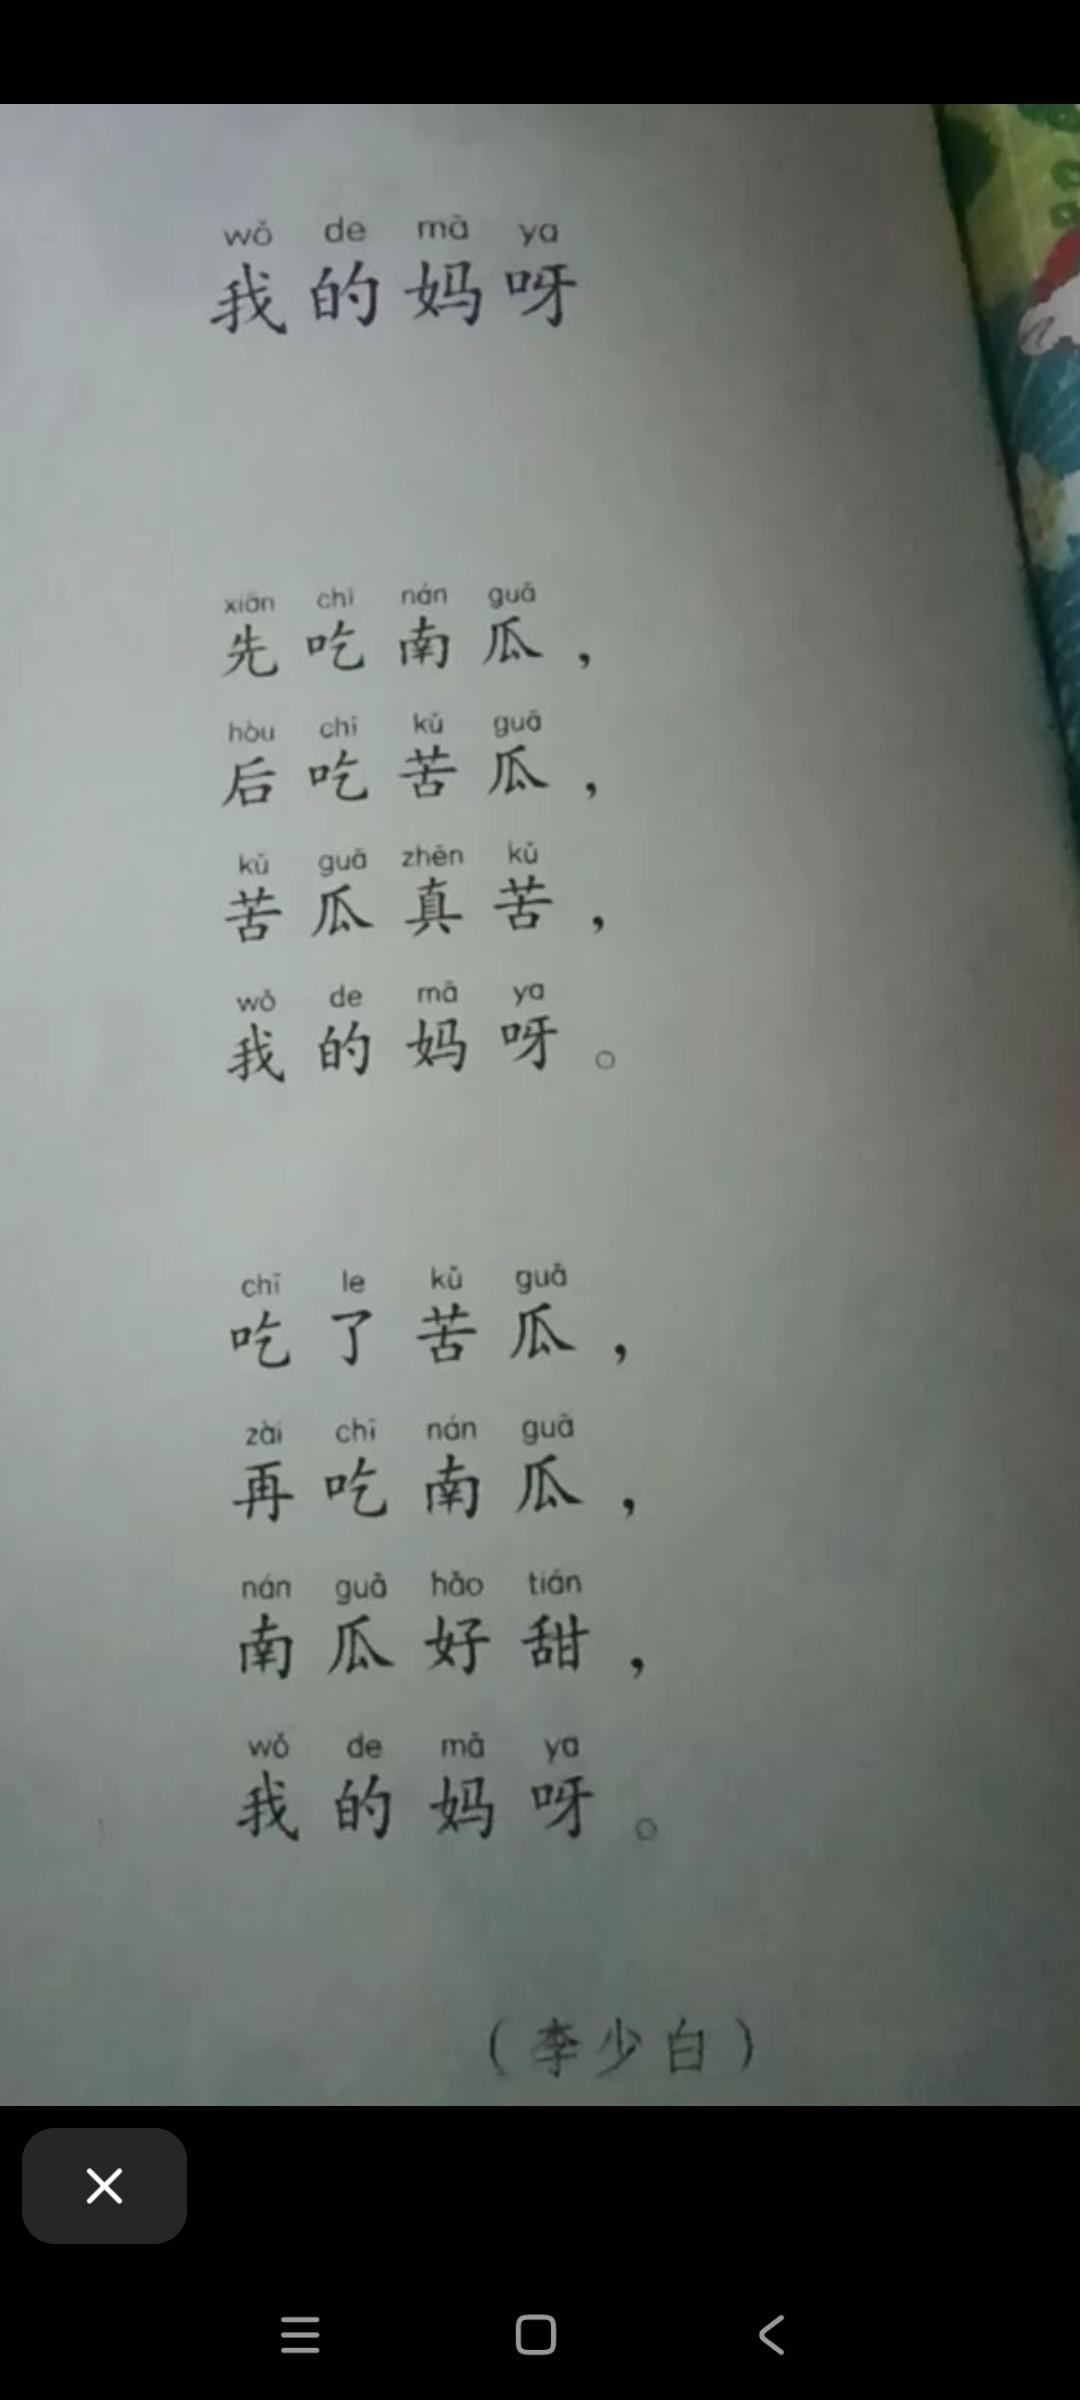 wǒ de mā ya
我的妈呀
xiān chī nán guā
先吃南瓜，
hòu chī kǔ guā
后吃苦瓜，
kǔ guā zhēn kǔ
苦瓜真苦，
wǒ de mā ya
我的妈呀。
chī le kǔ guā
吃了苦瓜，
zài chī nán guā
再吃南瓜，
nán guā hǎo tián
南瓜好甜，
wǒ de mā ya
我的妈呀。
（李少白）